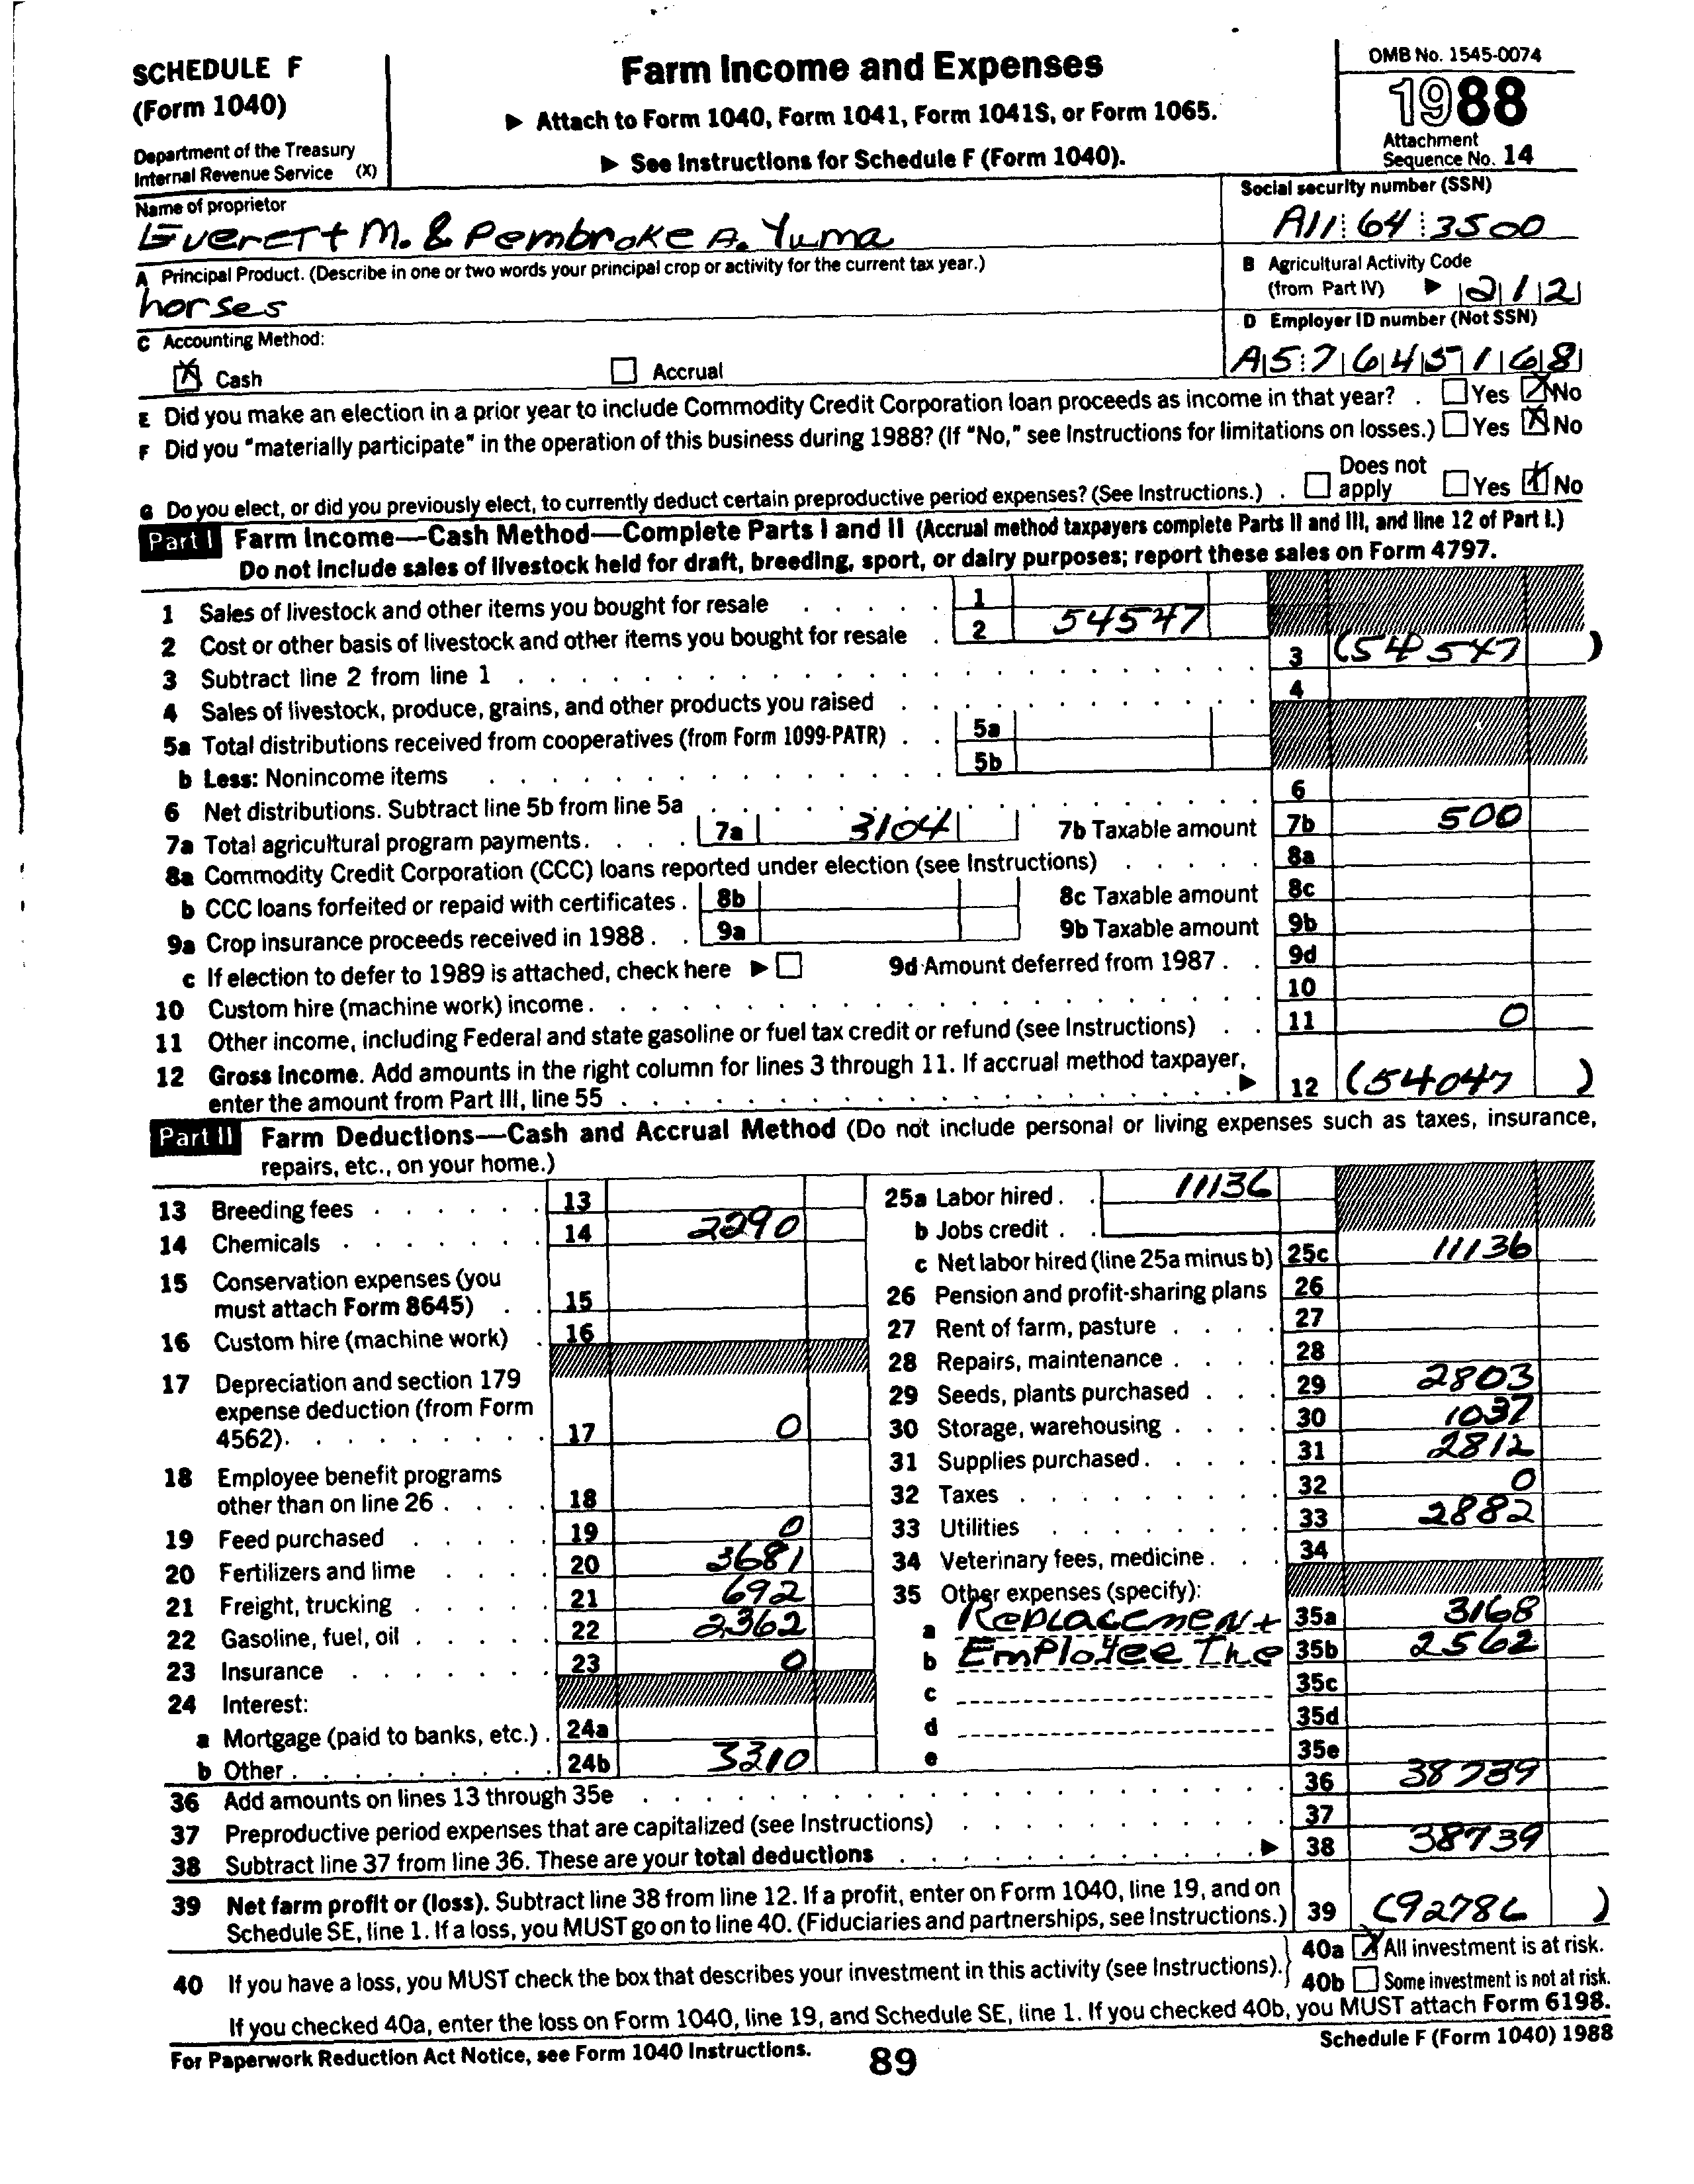 SCHEDULE F
(Form 1040)
Department of the Treasury
Internal Revenue Service (X)
Farm Income and Expenses
▶ Attach to Form 1040, Form 1041, Form 1041S, or Form 1065.
▶ See Instructions for Schedule F (Form 1040).
OMB No. 1545-0074
1988
Attachment
Sequence No. 14
Name of proprietor
Everett M. & Pembroke A. Yuma
Social security number (SSN)
A11 64 3500
A Principal Product. (Describe in one or two words your principal crop or activity for the current tax year.)
horses
B Agricultural Activity Code
(from Part IV) ▶ 212
C Accounting Method:
Cash Accrual
D Employer ID number (Not SSN)
A57645168
E Did you make an election in a prior year to include Commodity Credit Corporation loan proceeds as income in that year? . Yes No
F Did you "materially participate" in the operation of this business during 1988? (If "No," see Instructions for limitations on losses.) Yes No
G Do you elect, or did you previously elect, to currently deduct certain preproductive period expenses? (See Instructions.) . Does not apply Yes No
Part I Farm Income—Cash Method—Complete Parts I and II (Accrual method taxpayers complete Parts II and III, and line 12 of Part I.)
Do not include sales of livestock held for draft, breeding, sport, or dairy purposes; report these sales on Form 4797.
1 Sales of livestock and other items you bought for resale 1
2 Cost or other basis of livestock and other items you bought for resale 2 54547
3 Subtract line 2 from line 1 3 (54547)
4 Sales of livestock, produce, grains, and other products you raised 4
5a Total distributions received from cooperatives (from Form 1099-PATR) 5a
b Less: Nonincome items 5b
6 Net distributions. Subtract line 5b from line 5a 6
7a Total agricultural program payments. 7a 3104 7b Taxable amount 7b 500
8a Commodity Credit Corporation (CCC) loans reported under election (see Instructions) 8a
b CCC loans forfeited or repaid with certificates. 8b 8c Taxable amount 8c
9a Crop insurance proceeds received in 1988. 9a 9b Taxable amount 9b
c If election to defer to 1989 is attached, check here ▶ 9d Amount deferred from 1987. 9d
10 Custom hire (machine work) income. 10
11 Other income, including Federal and state gasoline or fuel tax credit or refund (see Instructions) 11 0
12 Gross Income. Add amounts in the right column for lines 3 through 11. If accrual method taxpayer,
enter the amount from Part III, line 55 ▶ 12 (54047)
Part II Farm Deductions—Cash and Accrual Method (Do not include personal or living expenses such as taxes, insurance,
repairs, etc., on your home.)
13 Breeding fees 13
14 Chemicals 14 2290
15 Conservation expenses (you
must attach Form 8645) 15
16 Custom hire (machine work) 16
17 Depreciation and section 179
expense deduction (from Form
4562). 17 0
18 Employee benefit programs
other than on line 26 18
19 Feed purchased 19 0
20 Fertilizers and lime 20 3681
21 Freight, trucking 21 692
22 Gasoline, fuel, oil 22 2362
23 Insurance 23 0
24 Interest:
a Mortgage (paid to banks, etc.) . 24a
b Other. 24b 3310
25a Labor hired. 11136
b Jobs credit
c Net labor hired (line 25a minus b) 25c 11136
26 Pension and profit-sharing plans 26
27 Rent of farm, pasture 27
28 Repairs, maintenance 28
29 Seeds, plants purchased 29 2803
30 Storage, warehousing 30 1037
31 Supplies purchased. 31 2812
32 Taxes 32 0
33 Utilities 33 2882
34 Veterinary fees, medicine. 34
35 Other expenses (specify):
a Replacement 35a 3168
b Employee The 35b 2562
c 35c
d 35d
e 35e
36 Add amounts on lines 13 through 35e 36 38739
37 Preproductive period expenses that are capitalized (see Instructions) 37
38 Subtract line 37 from line 36. These are your total deductions ▶ 38 38739
39 Net farm profit or (loss). Subtract line 38 from line 12. If a profit, enter on Form 1040, line 19, and on
Schedule SE, line 1. If a loss, you MUST go on to line 40. (Fiduciaries and partnerships, see Instructions.) 39 (92786)
40 If you have a loss, you MUST check the box that describes your investment in this activity (see Instructions). 40a All investment is at risk.
40b Some investment is not at risk.
If you checked 40a, enter the loss on Form 1040, line 19, and Schedule SE, line 1. If you checked 40b, you MUST attach Form 6198.
For Paperwork Reduction Act Notice, see Form 1040 Instructions.
89
Schedule F (Form 1040) 1988